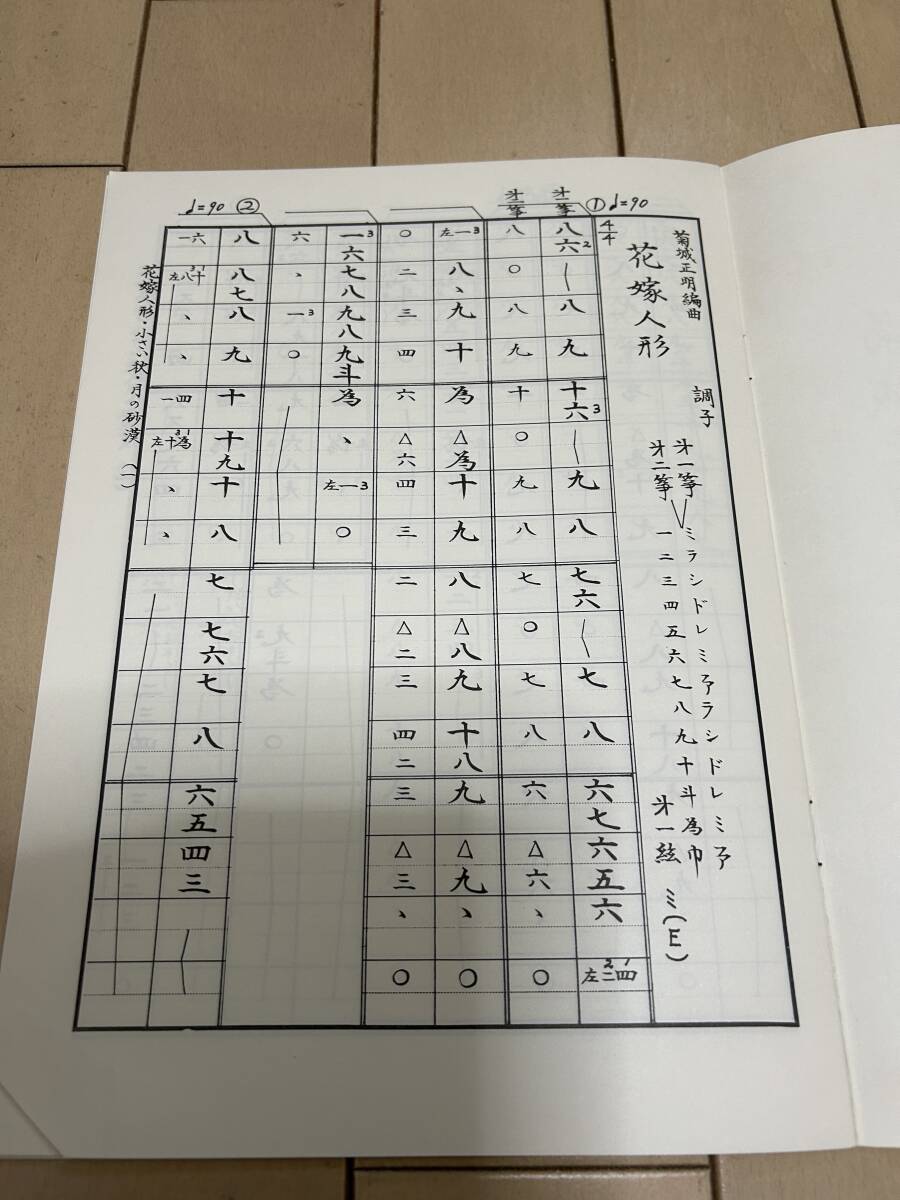 菊城正明編曲
花嫁人形
調子
第一箏
第二箏
ミラシドレミファラシドレミファ
一二三四五六七八九十斗為巾
第一絃 ミ(E)
① ♩=90
4/4
第一箏
八六2八九十六3九八七六七八六七六五六
第二箏
八○八九十○九八七○七八六△六、○
左一3八、九十為△為十九八△八九十八九△九、○
○二三四六△六四三二△二三四二三△三、○
一3六七八九八九斗為、左一3○
六、一3○
② ♩=90
八八七八九十十九十八七七六七八六五四三
一六左八十、、一四左十為、、
花嫁人形・小さい秋・月の砂漠 (一)